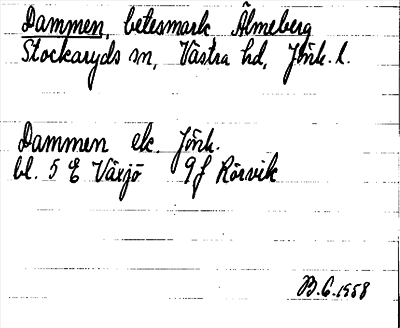 Dammen, betesmark Älmeberg
Stockaryds sn, Västra hd, Jönk. l.
Dammen ek. Jönk.
bl. 5 E Växjö 9f Rörvik
B.C. 1958